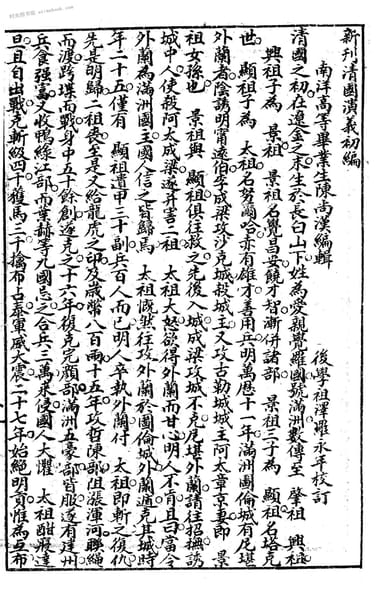 新刊清國演義初編
南洋高等畢業生陳尚漢編輯
後學祖澤羅永年校訂
清國之初在遼金之末生於長白山下姓為愛親覺羅國號滿洲數傳至 肇祖 興祖
興祖子為 景祖 景祖名覺昌安饒才智漸併諸部 景祖三子為 顯祖名塔克
世 顯祖子為 太祖名努爾哈赤有雄才善用兵明萬曆十一年滿洲圖倫城有尼堪
外蘭者陰誘明甯遠伯李成梁攻沙克城殺城主又攻古勒城城主阿太章京妻即 景
祖女孫也 景祖與 顯祖俱往救之先後入城成梁攻城不克尼堪外蘭請往招撫誘
城中人使殺阿太成梁遂并害二祖 太祖大怒欲得外蘭而甘心明人不肯且曰當令
外蘭為滿洲國王國人信之皆歸焉 太祖慨然往攻外蘭於圖倫城外蘭遁克其城時
年二十五僅有 顯祖遺甲三十副兵百人而已明人卒執外蘭付 太祖即斬之復仇
先是明歸二祖喪至是又給龍虎之印及歲幣八百兩十五年攻哲陳部阻漲渾河聯繩
而渡跨堞而戰身中五十餘創遂克之十六年復克完顏部滿洲五豪部皆服遂有建州
兵食强富又收鴨綠江部而葉赫等九國忌之合兵三萬來侵國人大懼 太祖酣寢達
旦且自出戰克斬級四千獲馬三千擒布占泰軍威大震二十七年始絕明貢惟為互布